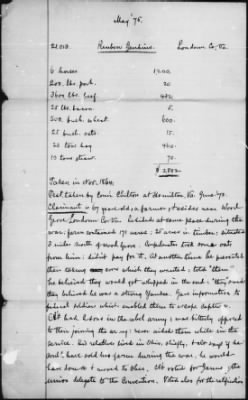 May '75.
21,013. Reuben Jenkins. Loudoun Co, Va.
6 horses 1,200.
200 lbs. pork. 20
3600 lbs. beef 432.
25 lbs. bacon 5.
500. bush. wheat 600.
25 bush. oats 15.
20 tons hay 460.
10 tons straw. 70.
$ 2,802.
Taken in Nov. 1864.
Test. taken by Com'r Chilton at Hamilton, Va. June '73.
Claimant is 67 years old, a farmer, & resides near
Grove, Loudoun Co. Va. Resided at same place during the
war; farm contained 171 acres: 25 acres in timber: situated
3 miles north of Grove. Confederates took some oats
from him: didn't pay for it. At another time he prevented
their taking corn which they wanted: told them
he believed they would get whipped in the end: "they said
they believed he was a strong Yankee. Gave information to
federal soldiers which enabled them to escape capture
Clt had 2 sons in the rebel army: was bitterly opposed
to their joining the army: never aided them while in the
service. his relatives lived in Ohio, chiefly, & clt says if he
could have sold his farm during the war, he would
have done so & moved to Ohio. Clt voted for Janney, the
union delegate to the Convention. Voted also for the rejection